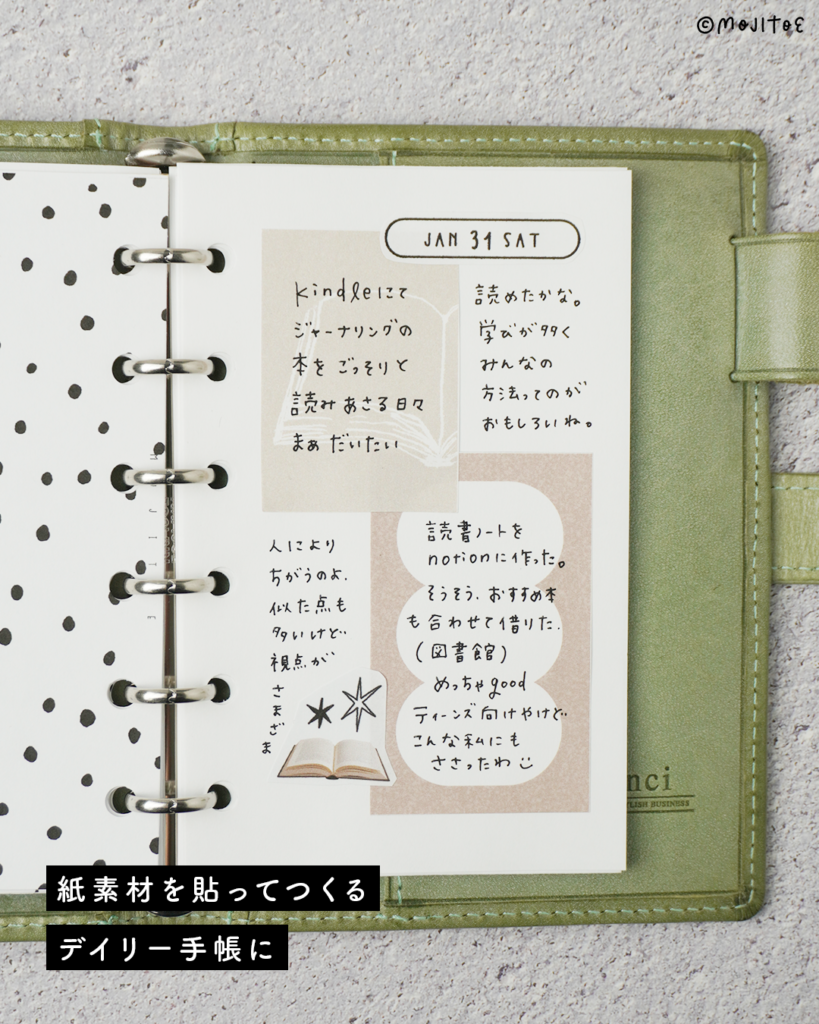 ©MOJITOE
JAN 31 SAT
kindleにて
ジャーナリングの
本を ごっそりと
読みあさる日々
まぁ だいたい
読めたかな。
学びが多く
みんなの
方法ってのが
おもしろいね。
人により
ちがうのよ、
似た点も
多いけど
視点が
さまざま
読書ノートを
notionに作った。
そうそう、おすすめ本
も合わせて借りた、
(図書館)
めっちゃgood
ティーンズ向けやけど
こんな私にも
ささったわ
MOJITOE
nci
LISH BUSINESS
紙素材を貼ってつくる
デイリー手帳に